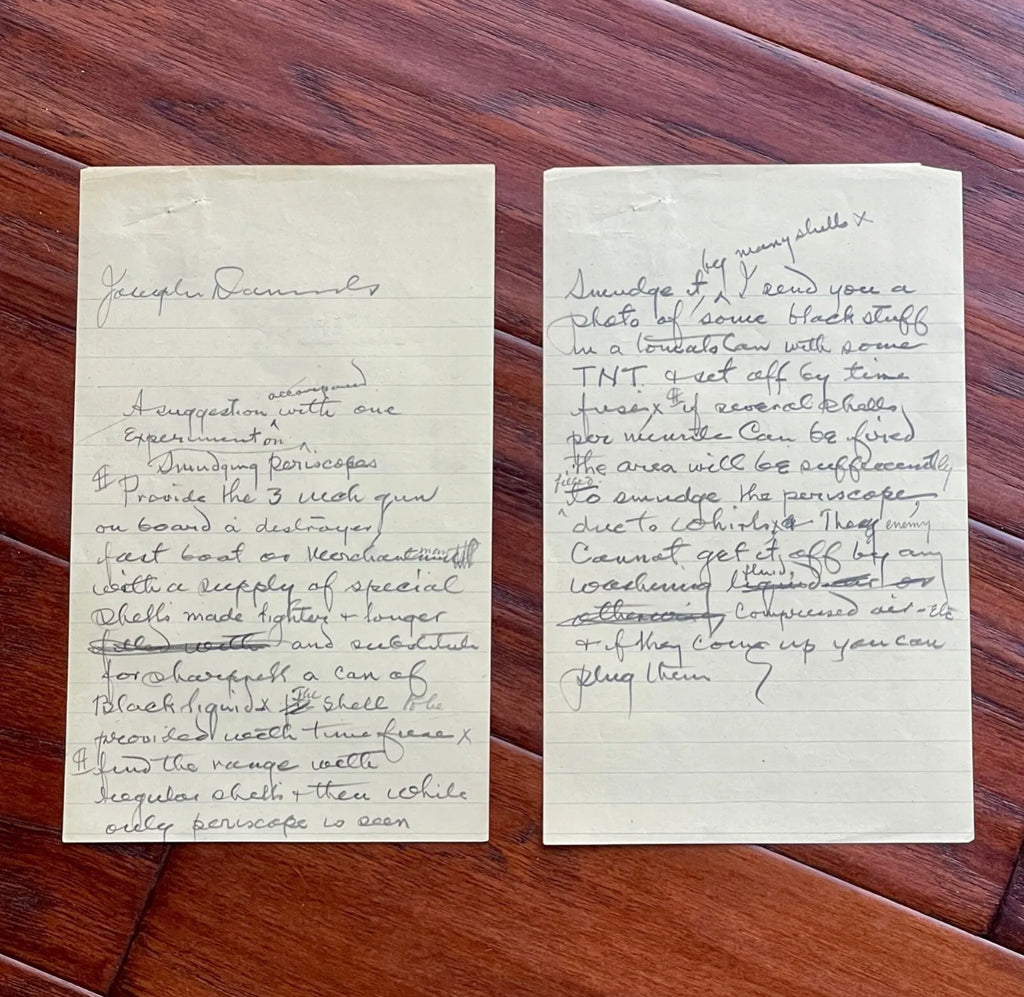 Joseph Daniels
accompanied
A suggestion ^ with one
Experiment on ^
Smudging periscopes
¶ Provide the 3 inch gun
on board a destroyer
fast boat or Merchant
with a supply of special
shells made lighter & longer
filled with and substitute
for sharpnell a can of
Black liquid x The shell to be
provided with time fuse x
¶ find the range with
regular shells & then while
only periscope is seen
by many shells x
Smudge it, ^ I send you a
photo of some black stuff
in a tomato can with some
TNT. & set off by time
fuse x ¶ if several shells
per minute Can be fired
the area will be sufficiently
filled
^ to smudge the periscope
due to whirls x & They enemy
Cannot get it off by any
fluid,
washening liquid air or
otherwise Compressed air - etc
& if they come up you can
plug them